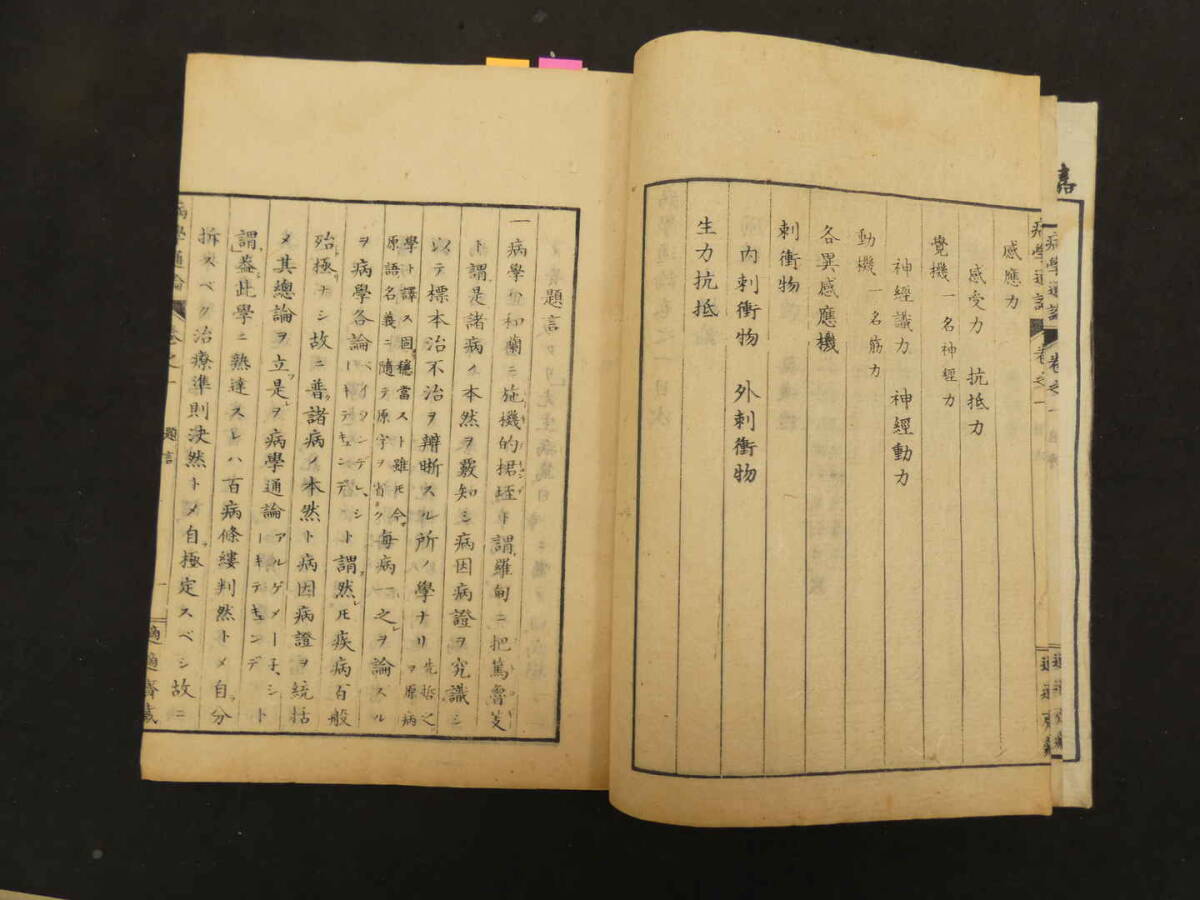 感應力
感受力 抗抵力
覺機一名神經力
神經識力 神經動力
動機一名筋力
各異感應機
刺衝物
內刺衝物 外刺衝物
生力抗抵
病學通論 卷之一
題言
一病學ハ和蘭ニ施機的捃蛭ト謂羅甸ニ把篤魯芰
ト謂是諸病ノ本然ヲ藪知シ病因病證ヲ究識シ
以テ標本治不治ヲ辨晰スル所ノ學ナリ先哲之ヲ原病
學ト譯ス固穩當スト雖𪜈今
原語名義ニ隨テ原字ヲ省ク每病一一之ヲ論スル
ヲ病學各論ベイソンデレ、シーキテキュンデト謂然𪜈疾病百般
殆極ナシ故ニ普諸病ノ本然ト病因病證ヲ統括
メ其總論ヲ立是ヲ病學通論アルゲメー子、シーキテキュンデト
謂蓋此學ニ熟達スレハ百病條縷判然トメ自分
拆スベク治療準則決然トメ自極定スベシ故ニ
病學通論 卷之一 題言 一 適適齋藏